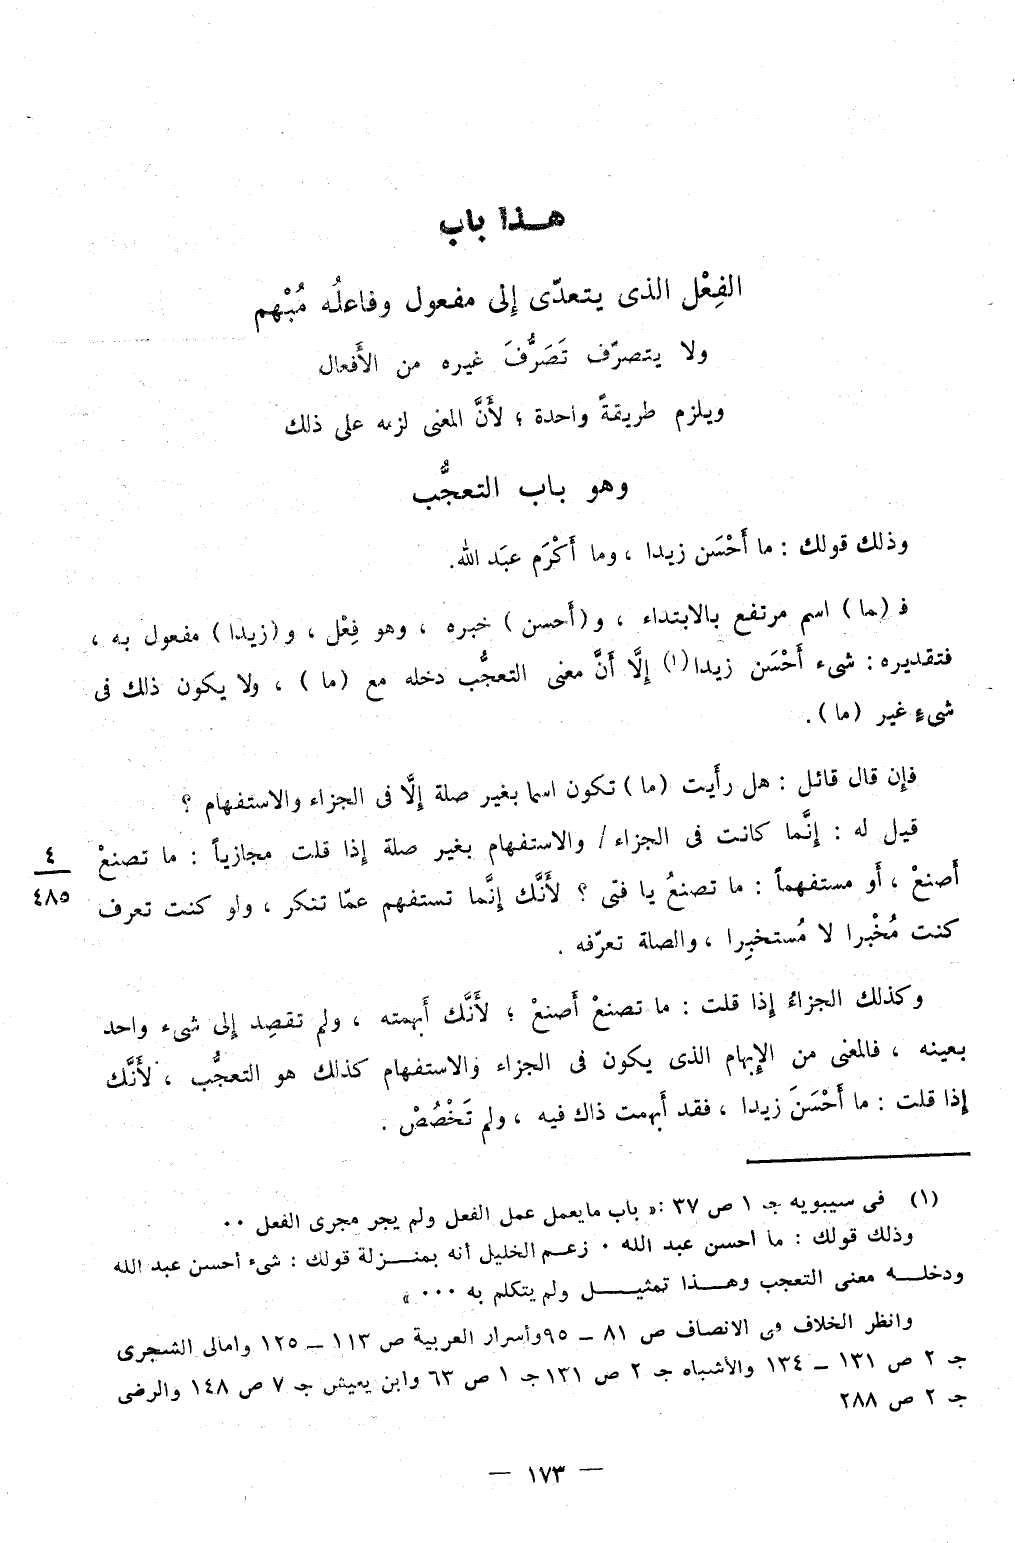 هـذا باب
الفِعْل الذى يتعدّى إلى مفعول وفاعلُه مُبْهم
ولا يتصرّف تَصَرُّفَ غيره من الأَفعال
ويلزم طريقةً واحدة ؛ لأَنَّ المعنى لزمه على ذلك
وهو باب التعجُّب
وذلك قولك : ما أَحْسَن زيدا ، وما أَكْرَم عبَد الله.
فـ (ما) اسم مرتفع بالابتداء ، و(أَحسن) خبره ، وهو فِعْل ، و(زيدا) مفعول به ،
فتقديره : شىء أَحْسَن زيدا(١) إلَّا أَنَّ معنى التعجُّب دخله مع (ما) ، ولا يكون ذلك فى
شىءٍ غير (ما).
فإن قال قائل : هل رأَيت (ما) تكون اسما بغير صلة إلَّا فى الجزاء والاستفهام ؟
قيل له : إنَّما كانت فى الجزاء / والاستفهام بغير صلة إذا قلت مجازياً : ما تصنعْ
٤
٤٨٥
أَصنعْ ، أَو مستفهماً : ما تصنعُ يا فتى ؟ لأَنَّك إنَّما تستفهم عمّا تنكر ، ولو كنت تعرف
كنت مُخْبرا لا مُستخبِرا ، والصلة تعرّفه .
وكذلك الجزاءُ إذا قلت : ما تصنعْ أَصنعْ ؛ لأَنَّك أَبهمته ، ولم تقصِد إلى شىء واحد
بعينه ، فالمعنى من الإبهام الذى يكون فى الجزاء والاستفهام كذلك هو التعجُّب ، لأَنَّك
إذا قلت : ما أَحْسَنَ زيدا ، فقد أَبهمت ذاك فيه ، ولم تَخْصُصْ .
(١) فى سيبويه جـ ١ ص ٣٧ :« باب مايعمل عمل الفعل ولم يجر مجرى الفعل ٠٠
وذلك قولك : ما أحسن عبد الله ٠ زعـم الخليل أنه بمنـزلة قولك : شىء أحسن عبد الله
ودخلـه معنى التعجب وهـذا تمثيـل ولم يتكلم به ٠٠٠ »
وانظر الخلاف فى الانصاف ص ٨١ ــ ٩٥وأسرار العربية ص ١١٣ ــ ١٢٥ وامالى الشجرى
جـ ٢ ص ١٣١ ــ ١٣٤ والأشباه جـ ٢ ص ١٣١جـ ١ ص ٦٣ وابن يعيش جـ ٧ ص ١٤٨ والرضى
جـ ٢ ص ٢٨٨
— ١٧٣ —